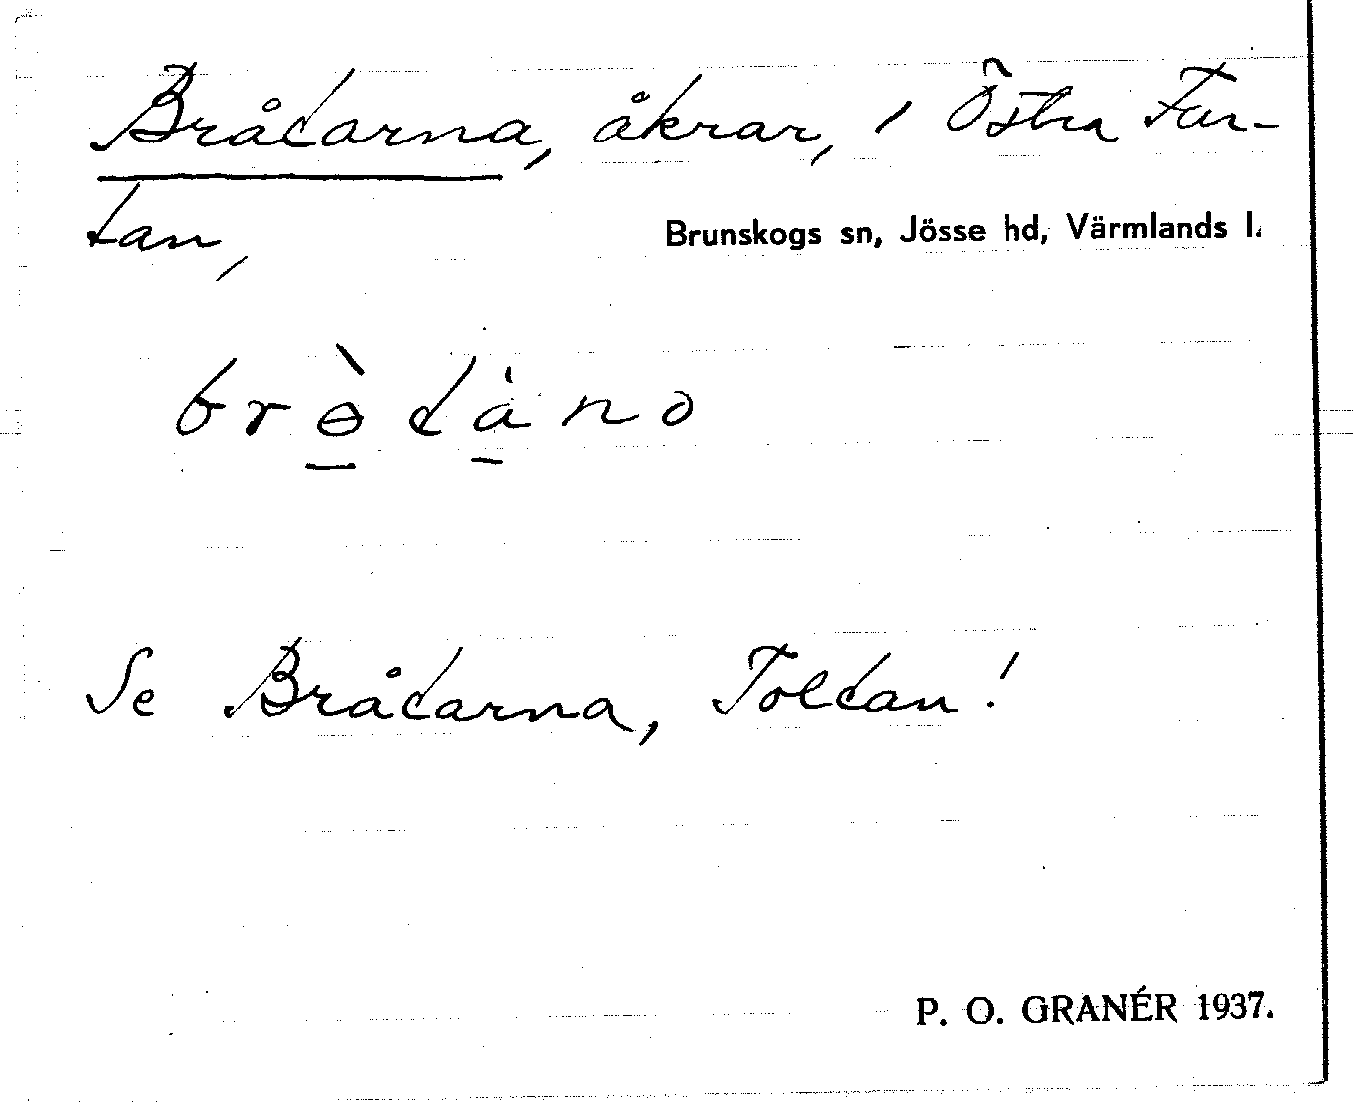 Brådarna, åkrar, i Östra Fur-
tan,
Brunskogs sn, Jösse hd, Värmlands l.
brɵ̀dȧnɔ
Se Brådarna, Toldan!
P. O. GRANÉR 1937.